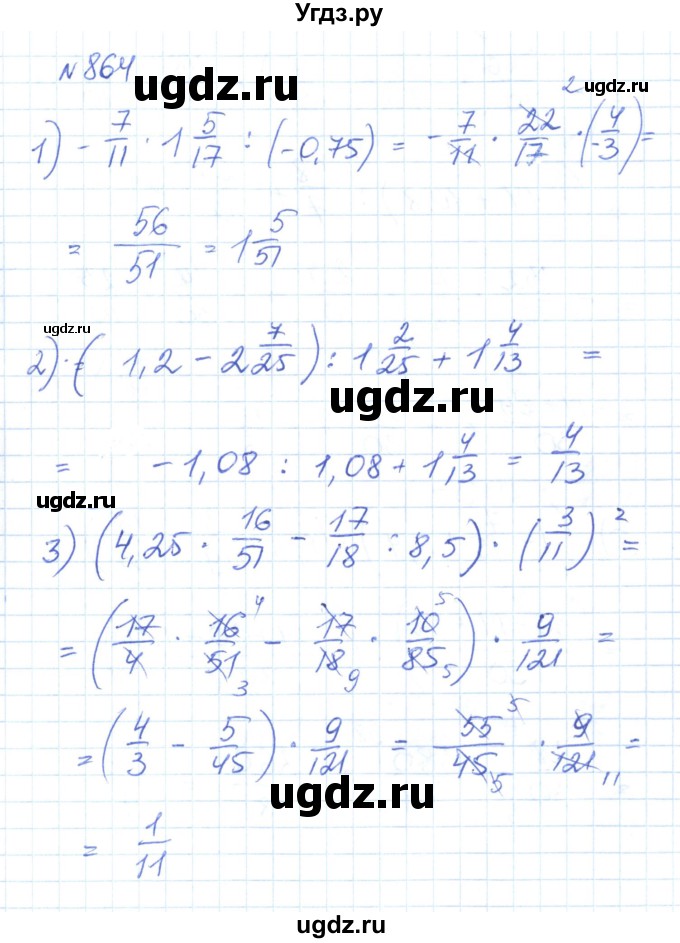 Угдз.ру
№ 864
ugdz.ru
ugdz.ru
1) - 7/11 · 1 5/17 : (-0,75) = - 7/11 · 22/17 · (4/-3) = 2
= 56/51 = 1 5/51
ugdz.ru
2) (1,2 - 2 7/25) : 1 2/25 + 1 4/13 =
ugdz.ru
= -1,08 : 1,08 + 1 4/13 = 4/13
ugdz.ru
3) (4,25 · 16/51 - 17/18 : 8,5) · (3/11)² =
= (17/4 · 16/51 - 17/18 · 10/85) · 9/121 = 4 3 9 5 5
= (4/3 - 5/45) · 9/121 = 55/45 · 9/121 = 5 5 11
ugdz.ru
= 1/11
ugdz.ru